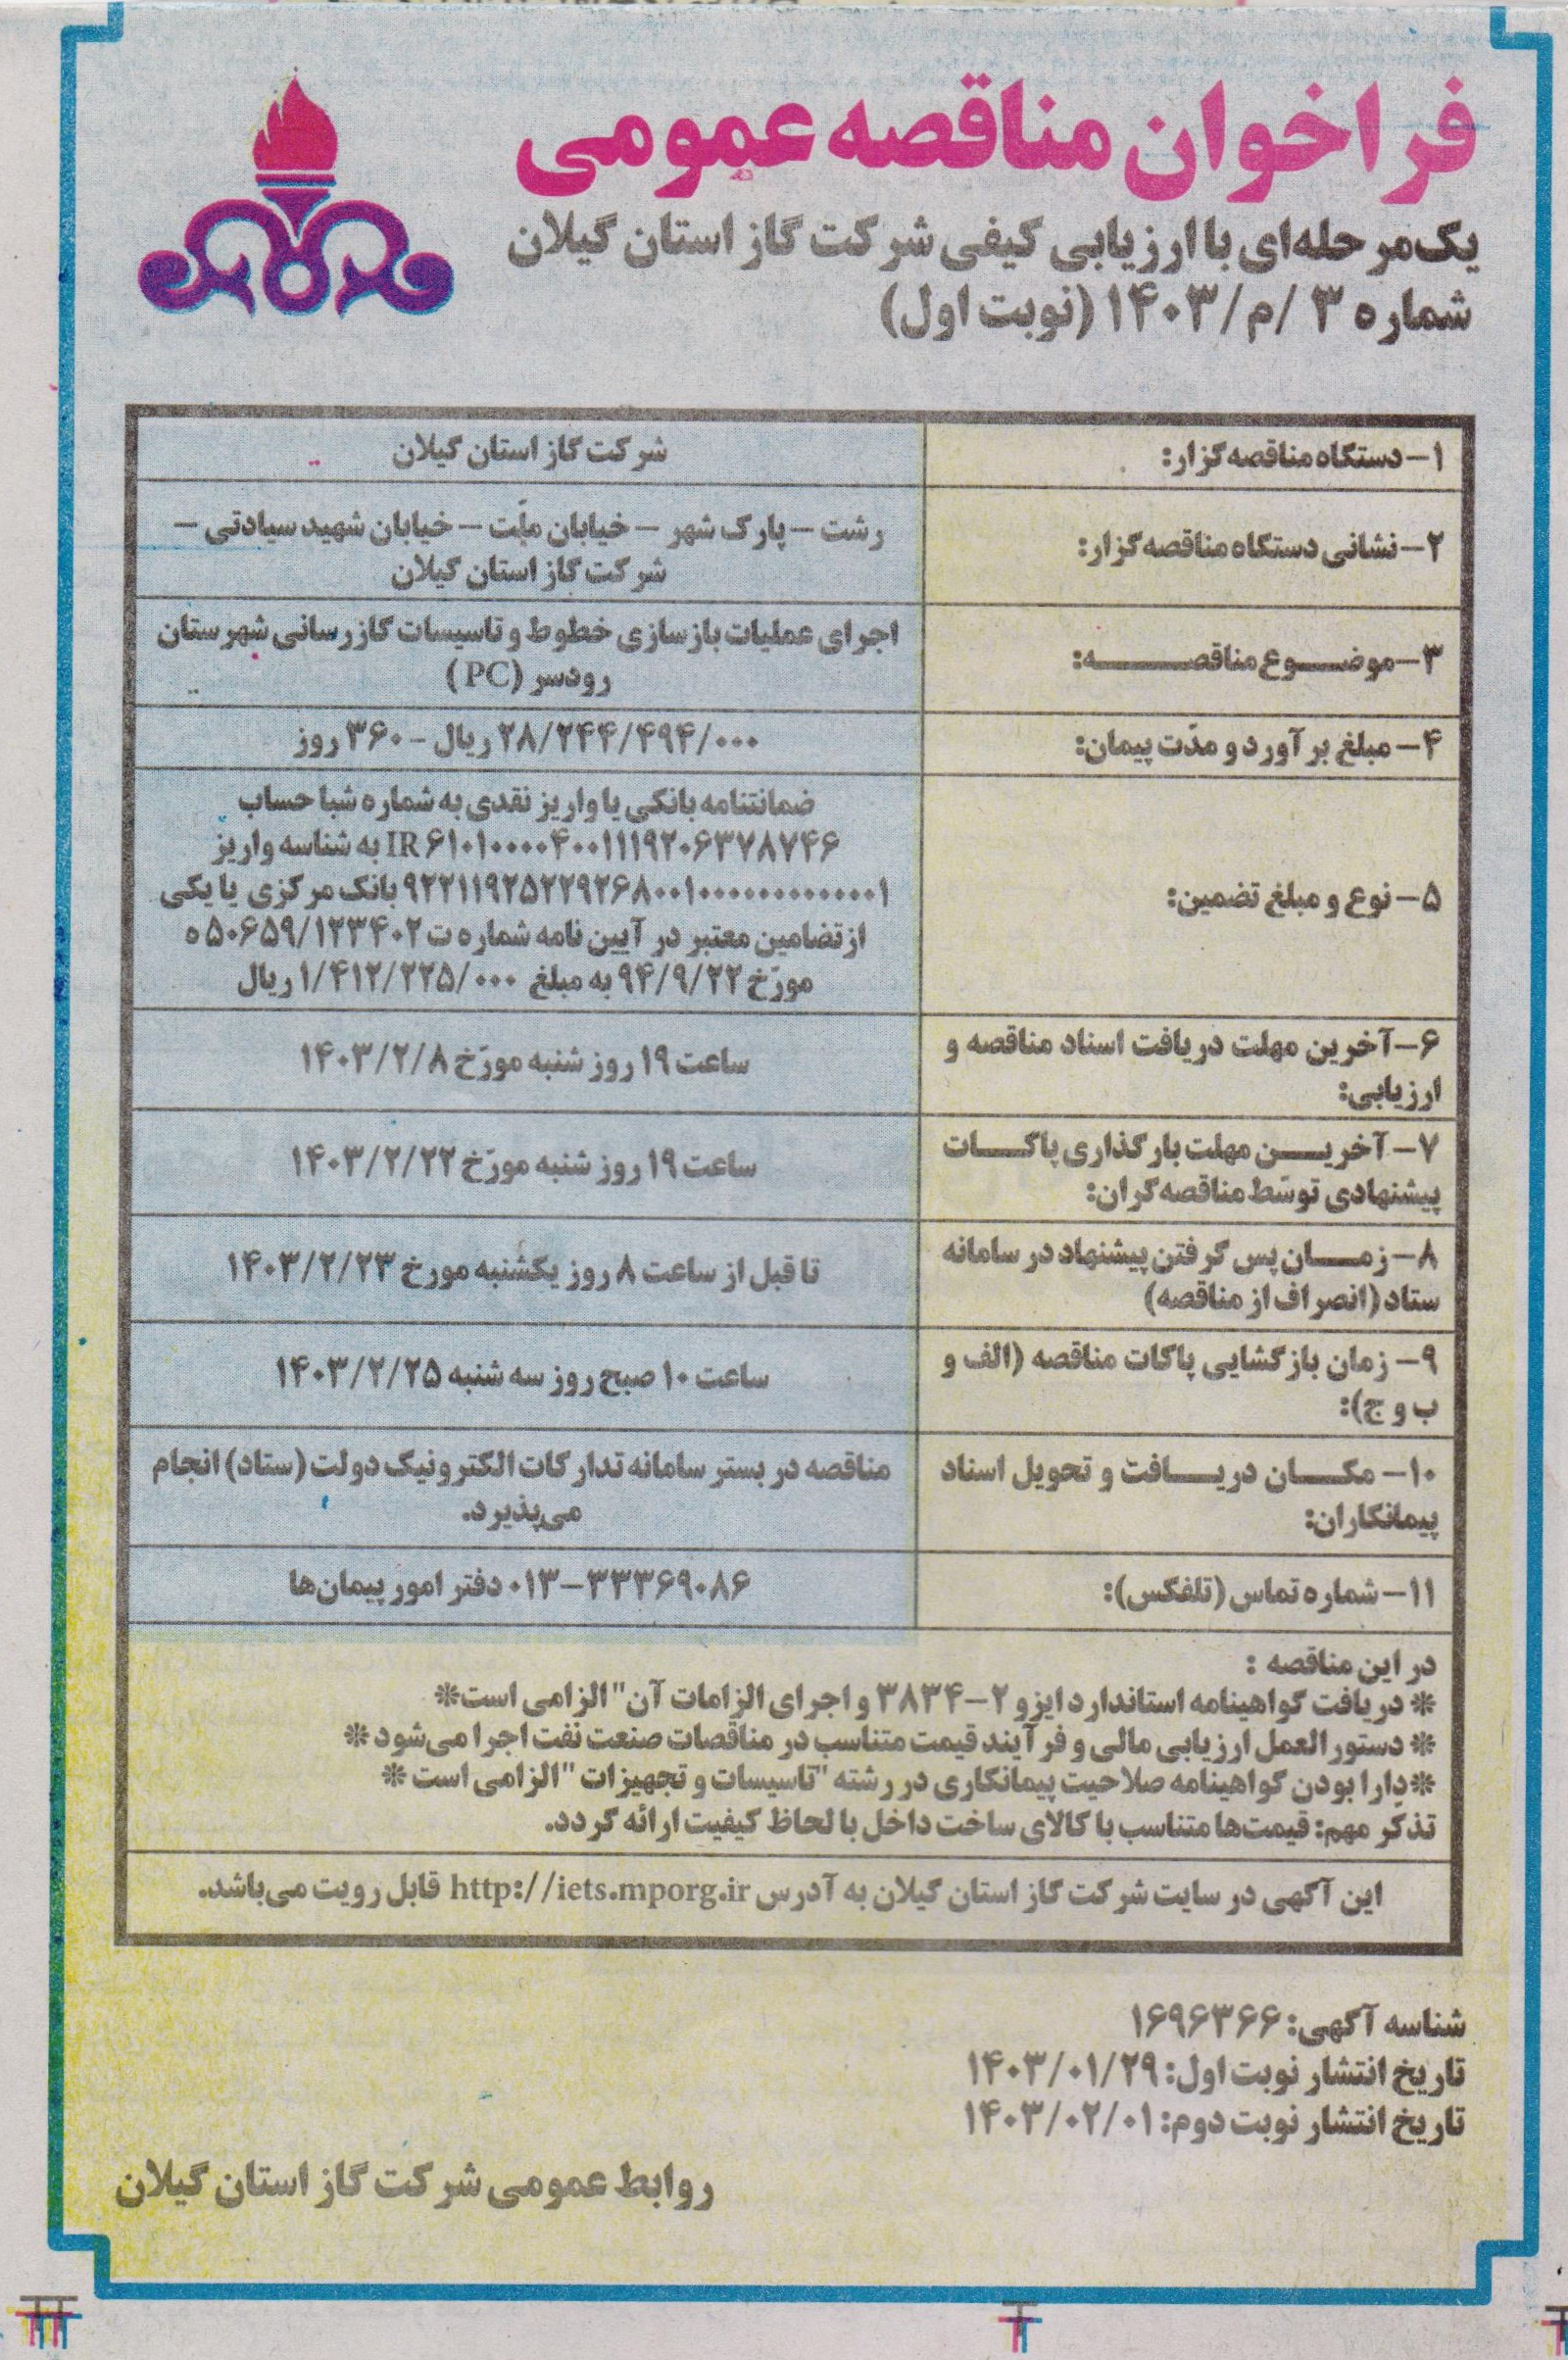 فراخوان مناقصه عمومی
یک‌مرحله‌ای با ارزیابی کیفی شرکت گاز استان گیلان
شماره ۳ /م/۱۴۰۳ (نوبت اول)
۱- دستگاه مناقصه‌گزار:
شرکت گاز استان گیلان
۲- نشانی دستگاه مناقصه‌گزار:
رشت – پارک شهر – خیابان ملّت – خیابان شهید سیادتی –
شرکت گاز استان گیلان
۳- موضـــوع مناقصـــــــه:
اجرای عملیات بازسازی خطوط و تاسیسات گازرسانی شهرستان
رودسر (PC)
۴- مبلغ برآورد و مدّت پیمان:
۲۸/۲۴۴/۴۹۴/۰۰۰ ریال - ۳۶۰ روز
۵- نوع و مبلغ تضمین:
ضمانتنامه بانکی یا واریز نقدی به شماره شبا حساب
IR ۶۱۰۱۰۰۰۰۴۰۰۱۱۱۹۲۰۶۳۷۸۷۴۶ به شناسه واریز
۹۲۲۱۱۹۲۵۲۲۹۲۶۸۰۰۱۰۰۰۰۰۰۰۰۰۰۰۰۰۱ بانک مرکزی یا یکی
از تضامین معتبر در آیین نامه شماره ت ۵۰۶۵۹/۱۲۳۴۰۲ ه
مورّخ ۹۴/۹/۲۲ به مبلغ ۱/۴۱۲/۲۲۵/۰۰۰ ریال
۶- آخرین مهلت دریافت اسناد مناقصه و
ارزیابی:
ساعت ۱۹ روز شنبه مورّخ ۱۴۰۳/۲/۸
۷- آخریــــن مهلت بارگذاری پاکـــات
پیشنهادی توسّط مناقصه‌گران:
ساعت ۱۹ روز شنبه مورّخ ۱۴۰۳/۲/۲۲
۸- زمـــان پس گرفتن پیشنهاد در سامانه
ستاد (انصراف از مناقصه)
تا قبل از ساعت ۸ روز یکشنبه مورخ ۱۴۰۳/۲/۲۳
۹- زمان بازگشایی پاکات مناقصه (الف و
ب و ج):
ساعت ۱۰ صبح روز سه شنبه ۱۴۰۳/۲/۲۵
۱۰- مکـــان دریـــافت و تحویل اسناد
پیمانکاران:
مناقصه در بستر سامانه تدارکات الکترونیک دولت (ستاد) انجام
می‌پذیرد.
۱۱- شماره تماس (تلفکس):
۰۱۳-۳۳۳۶۹۰۸۶ دفتر امور پیمان‌ها
در این مناقصه :
* دریافت گواهینامه استاندارد ایزو ۲-۳۸۳۴ و اجرای الزامات آن" الزامی است*
* دستورالعمل ارزیابی مالی و فرآیند قیمت متناسب در مناقصات صنعت نفت اجرا می‌شود *
*دارا بودن گواهینامه صلاحیت پیمانکاری در رشته "تاسیسات و تجهیزات "الزامی است *
تذکّر مهم: قیمت‌ها متناسب با کالای ساخت داخل با لحاظ کیفیت ارائه گردد.
این آگهی در سایت شرکت گاز استان گیلان به آدرس http://iets.mporg.ir قابل رویت می‌باشد.
شناسه آگهی: ۱۶۹۶۳۶۶
تاریخ انتشار نوبت اول: ۱۴۰۳/۰۱/۲۹
تاریخ انتشار نوبت دوم: ۱۴۰۳/۰۲/۰۱
روابط عمومی شرکت گاز استان گیلان